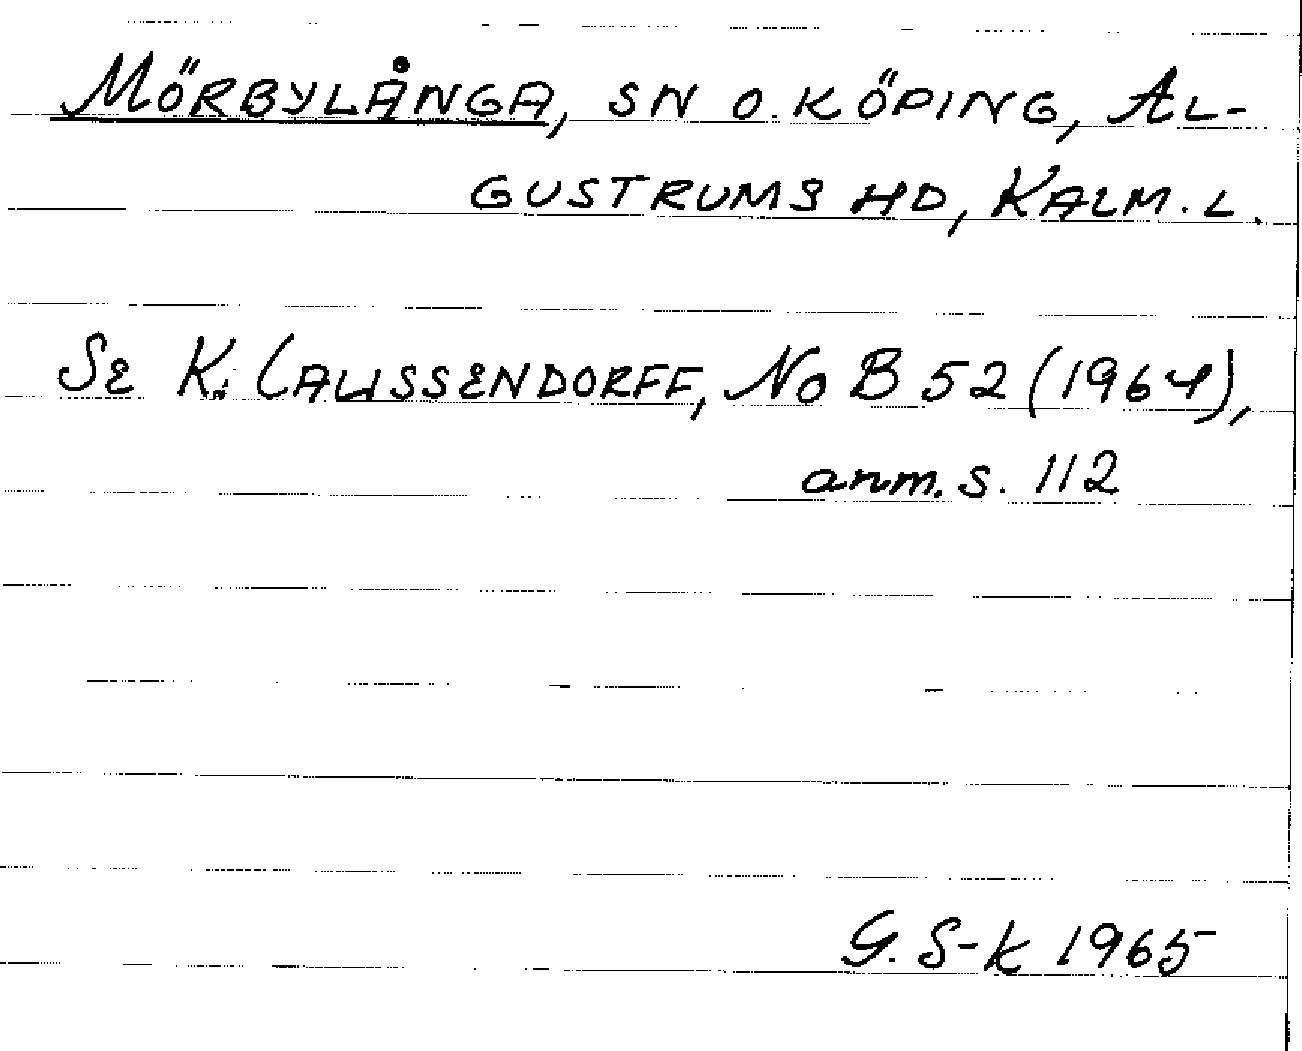 MÖRBYLÅNGA, SN O. KÖPING, AL-
GUSTRUMS HD, KALM. L.
SE K. CLAUSSENDORFF, NoB 52 (1964),
anm. s. 112
G. S-K 1965